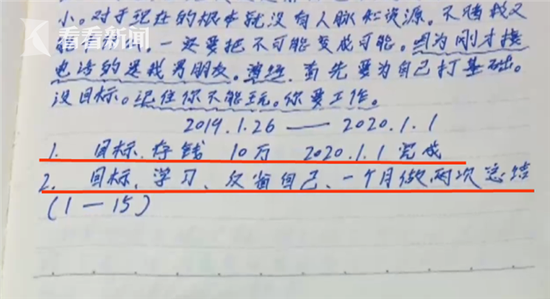 小。对于现在的根本就没有人脉和资源。不赌我又
看看新闻 一定要把不可能变成可能。因为刚才接
电话的是我男朋友。首先要为自己打基础。
没目标。记住你不能玩。你要工作。
2019.1.26 — 2020.1.1
1. 目标、存钱 10万 2020.1.1 完成
2. 目标、学习、反省自己、一个月做两次总结
(1—15)